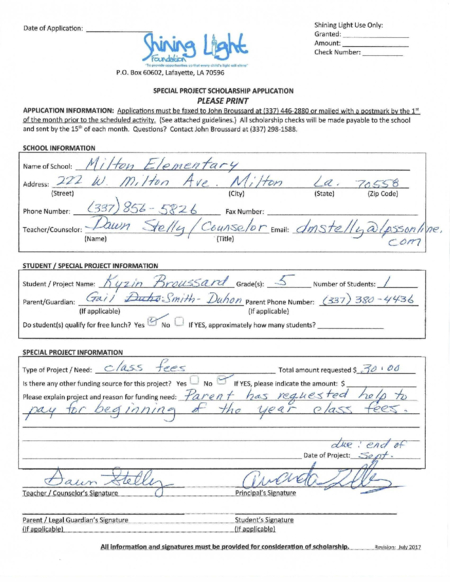 Date of Application:
Shining Light Use Only:
Granted:
Amount:
Check Number:
Shining Light
Foundation
"To provide opportunities so that every child's light will shine"
P.O. Box 60602, Lafayette, LA 70596
SPECIAL PROJECT SCHOLARSHIP APPLICATION
PLEASE PRINT
APPLICATION INFORMATION: Applications must be faxed to John Broussard at (337) 446-2880 or mailed with a postmark by the 1st
of the month prior to the scheduled activity. (See attached guidelines.) All scholarship checks will be made payable to the school
and sent by the 15th of each month. Questions? Contact John Broussard at (337) 298-1588.
SCHOOL INFORMATION
Name of School: Milton Elementary
Address: 222 W. Milton Ave. Milton La. 70558
(Street) (City) (State) (Zip Code)
Phone Number: (337) 856-5826 Fax Number:
Teacher/Counselor: Dawn Stelly / Counselor Email: dmstelly@lpssonline.
com
(Name) (Title)
STUDENT / SPECIAL PROJECT INFORMATION
Student / Project Name: Kyzin Broussard Grade(s): 5 Number of Students: 1
Parent/Guardian: Gail Smith-Duhon Parent Phone Number: (337) 380-4436
(If applicable) (If applicable)
Do student(s) qualify for free lunch? Yes No If YES, approximately how many students?
SPECIAL PROJECT INFORMATION
Type of Project / Need: class fees Total amount requested $ 30.00
Is there any other funding source for this project? Yes No If YES, please indicate the amount: $
Please explain project and reason for funding need: Parent has requested help to
pay for beginning of the year class fees.
due: end of
Date of Project: Sept.
Dawn Stelly
Teacher / Counselor's Signature Principal's Signature
Parent / Legal Guardian's Signature Student's Signature
(If applicable) (If applicable)
All information and signatures must be provided for consideration of scholarship. Revision: July 2017